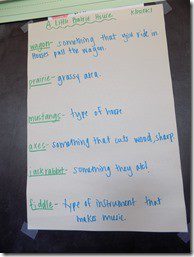 Little Prairie House
wagon- something that you ride in
horses pull the wagon.
prairie- grassy area.
mustangs- type of horse
axes- something that cuts wood, sharp
jackrabbit- something they ate!
fiddle- type of instrument that
makes music.